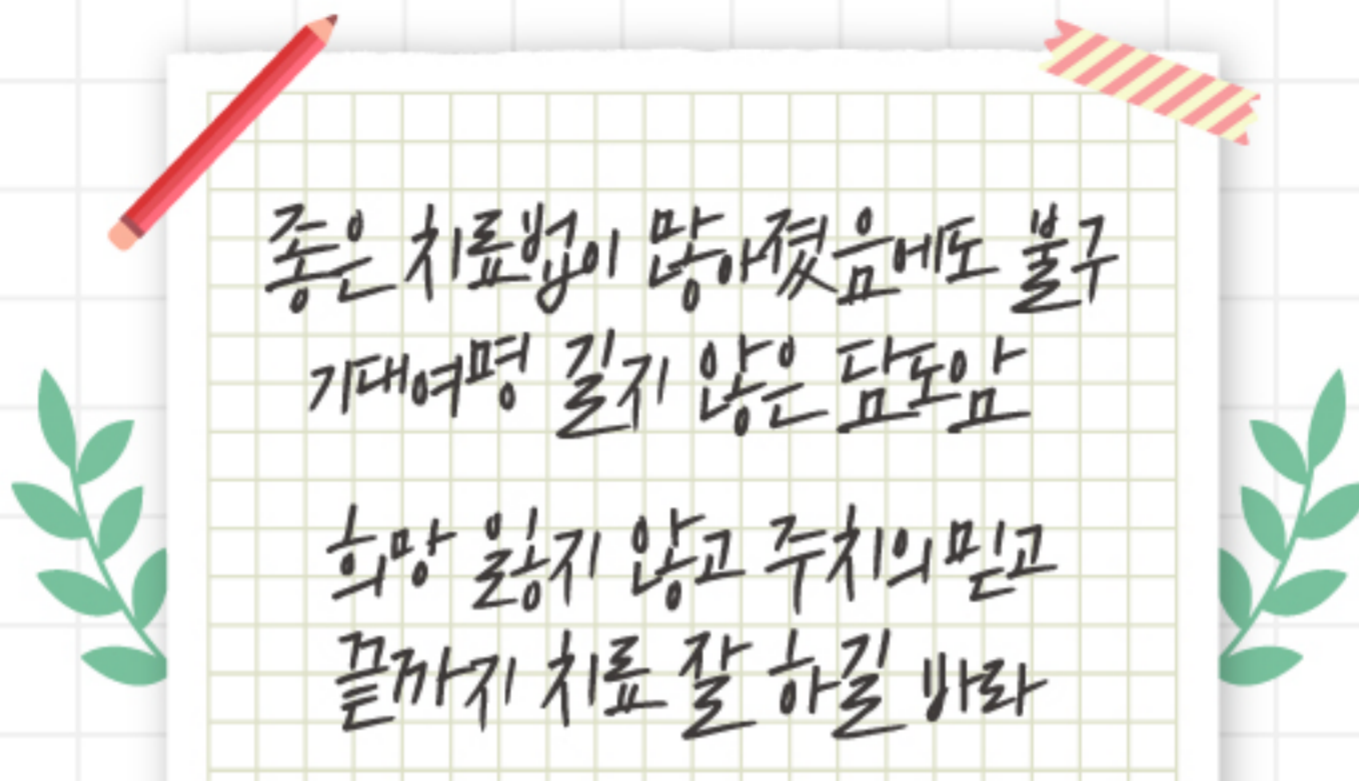 좋은 치료법이 많아졌음에도 불구
기대여명 길지 않은 담도암
희망 잃지 않고 주치의 믿고
끝까지 치료 잘 하길 바라